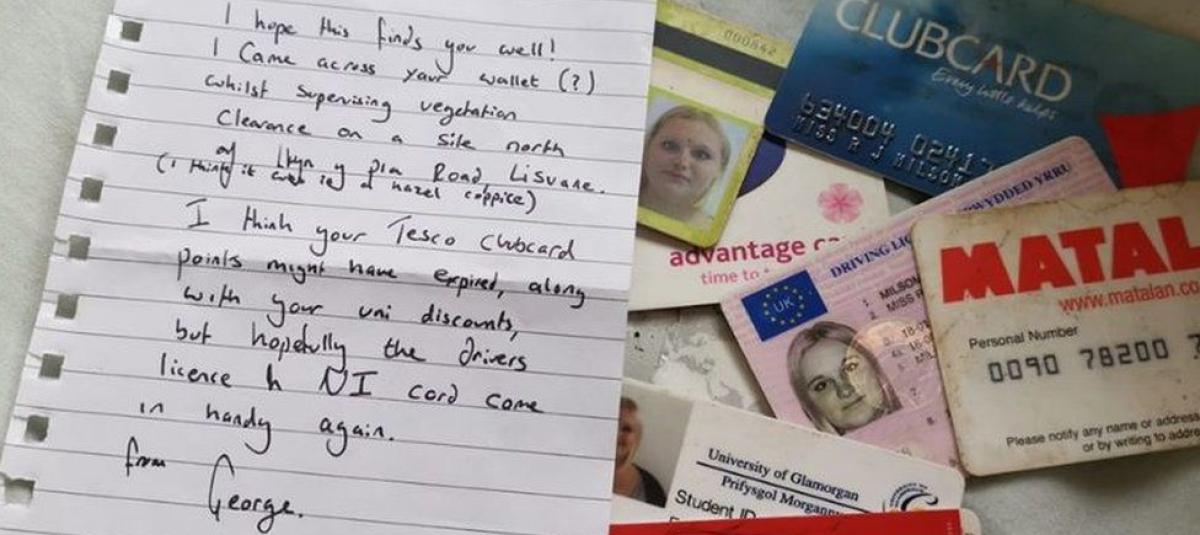 I hope this finds you well!
I came across your wallet (?)
whilst supervising vegetation
clearance on a site north
of Llwyn y Pia Road, Lisvane.
(I think it was in a hazel coppice)
I think your Tesco Clubcard
points might have expired, along
with your uni discounts,
but hopefully the drivers
licence & NI card come
in handy again.
from
George.
000842
CLUBCARD
Every little helps
634004 0241
MISS R J MILSOM
advantage
time to
DRIVING LIC
WYDDED YRRU
UK
1. MILSOM
2. MISS R
3. 18-0
4a. 16-0
5. MIL
8.
9.
MATAL
www.matalan.co
Personal Number
0090 78200 7
Please notify any name or address
or by writing to addre
University of Glamorgan
Prifysgol Morgannw
Student ID